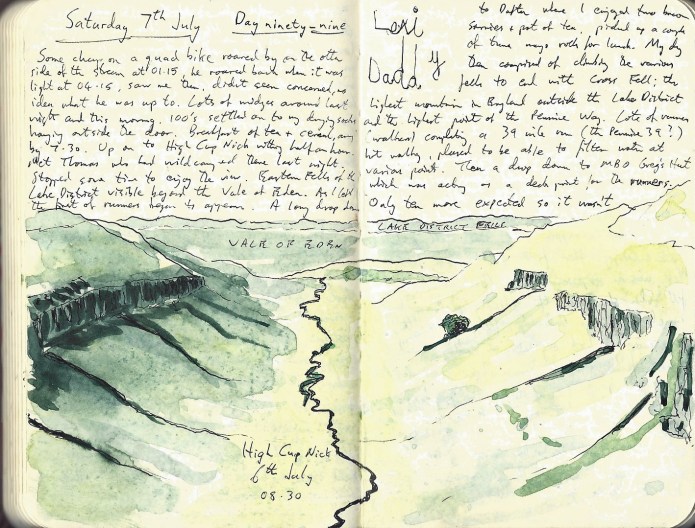 Saturday 7th July
Day ninety-nine
Some chap on a quad bike roared by on the other
side of the stream at 01.15, he roared back when it was
light at 04.15, saw me then, didn't seem concerned, no
idea what he was up to. Lots of midges around last
night and this morning, 100's settled on to my drying socks
hanging outside the door. Breakfast of tea & cereal, away
by 7.30. Up on to High Cup Nick within half an hour.
Met Thomas who had wildcamped there last night.
Stopped some time to enjoy the view. Eastern Fells of the
Lake District visible beyond the Vale of Eden. As I left
the first of runners began to appear. A long drop down
Lexi
Daddy
to Dufton where I enjoyed two brown
sarnies & pot of tea, picked up a couple
of more rolls for lunch. My day
then comprised of climbing the various
fells to end with Cross Fell; the
highest mountain in England outside the Lake District
and the highest point of the Pennine Way. Lots of runners
(walkers) completing a 39 mile run (the Pennine 39?)
but walking, pleased to be able to filter water at
various points. Then a drop down to MBO Greg's Hut
which was acting as a check point for the runners.
Only ten more expected so it wasn't
VALE OF EDEN
LAKE DISTRICT FELLS
High Cup Nick
6th July
08.30